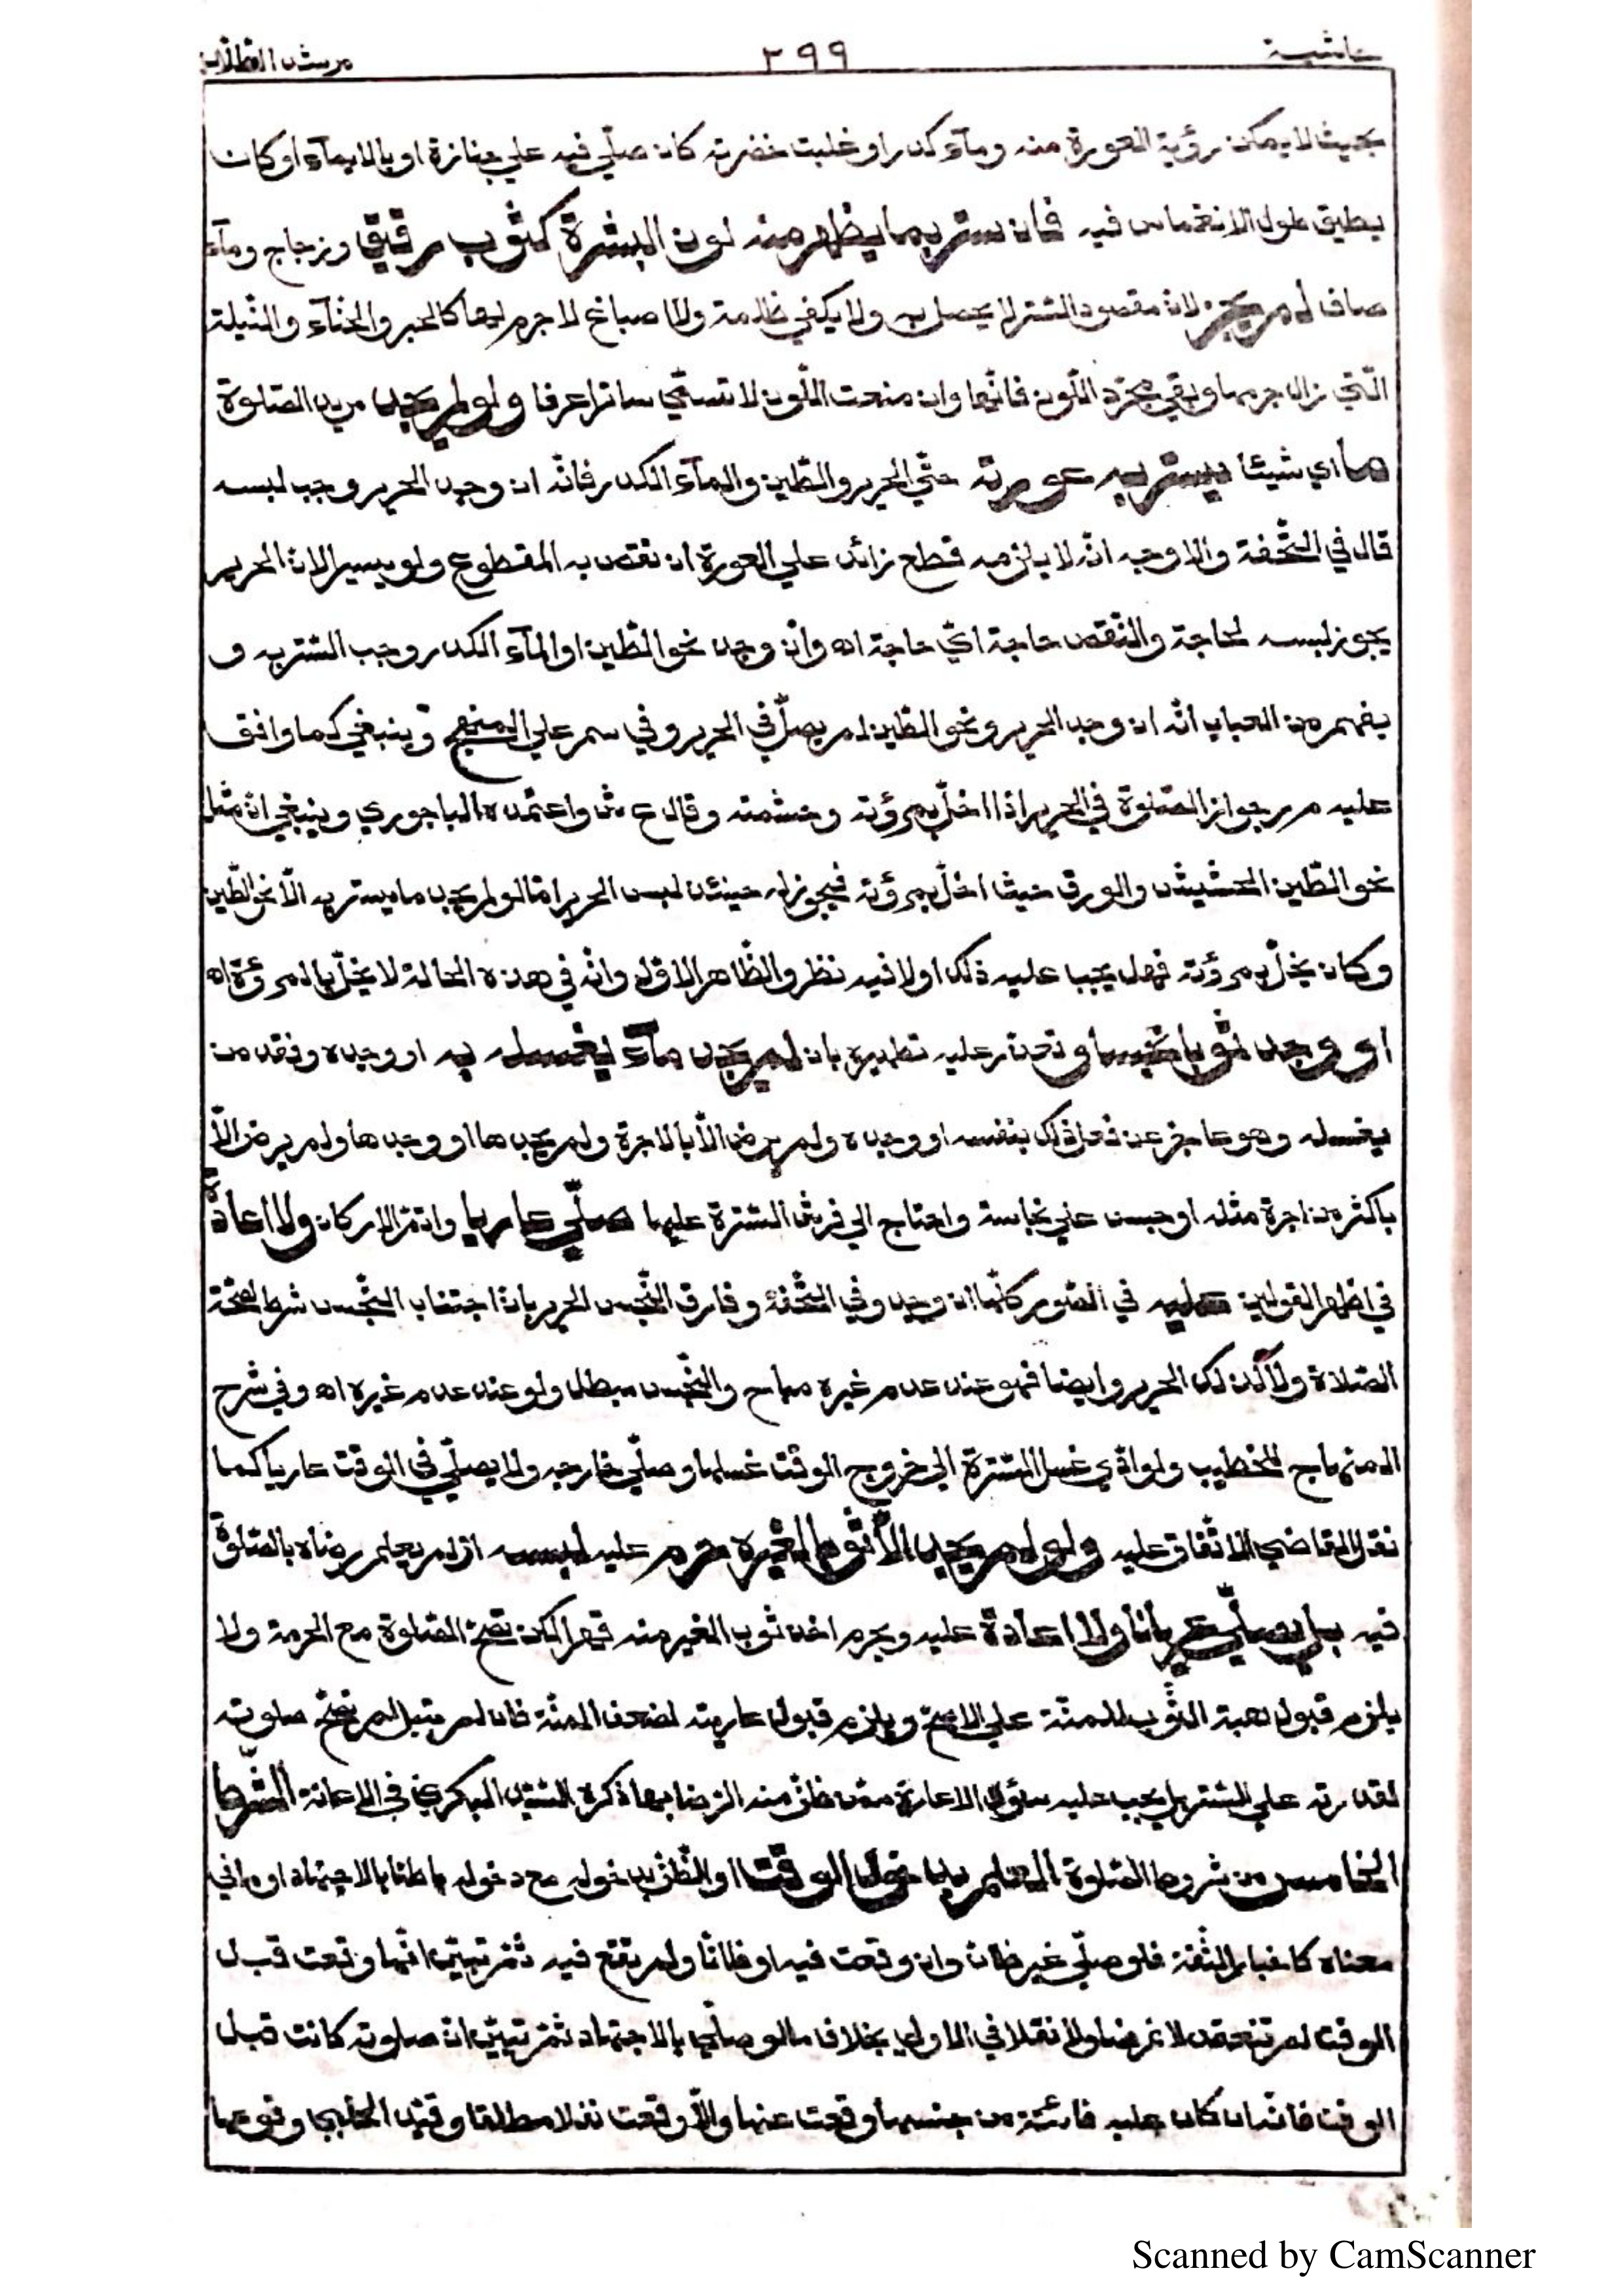 حاشية ٣٩٩ مرشد الطلاب
بحيث لا يمكن رؤية العورة منه وماء كدر او غلبت خضرته كان صلّي فيه علي جنازة او بالايماء او كان
يطيق طول الانغماس فيه فان ستر بما يظهر منه لون البشرة كثوب رقيق وزجاج وماء
صاف لم يجز لانّ مقصود السّتر لا يحصل به ولا يكفي ظلمة ولا اصباغ لا جرم لها كالحبر والحنّاء والنّيلة
الّتي زال جرمها وبقي مجرّد اللّون فانّها وان منعت اللّون لا تسمّي ساترا عرفا ولو لم يجد مريد الصّلوة
ما اي شيئا يستر به عورته حتّي الحرير والطّين والماء الكدر فانّه ان وجد الحرير وجب لبسه
قال في التّحفة والاوجه انّه لا يلزمه قطع زائد علي العورة ان نقص به المقطوع ولو يسيرا لانّ الحرير
يجوز لبسه لحاجة والنّقص حاجة ايّ حاجة اه وان وجد نحو الطّين او الماء الكدر وجب السّتر به و
يفهم من العباب انّه ان وجد الحرير ونحو الطّين لم يصلّ في الحرير وفي سم علي المنهج وينبغي كما وافق
عليه م ر جواز الصّلوة في الحرير اذا اخلّ بمروّته وحشمته وقال ع ش واعتمده الباجوري وينبغي انّ مثل
نحو الطّين الحشيش والورق حيث اخلّ بمروّته فيجوز له حينئذ لبس الحرير امّا لو لم يجد ما يستر به الّا نحو الطّين
وكان يخلّ بمروّته فهل يجب عليه ذلك او لا فيه نظر والظّاهر الاوّل وانّه في هذه الحالة لا يخلّ بالمروّة اه
او وجد ثوبا نجسا وتعذّر عليه تطهيره بان لم يجد ماء يغسله به او وجده وفقد من
يغسله وهو عاجز عن فعل ذلك بنفسه او وجده ولم يرض الّا بالاجرة ولم يجدها او وجدها ولم يرض الّا
باكثر من اجرة مثله او حبس علي نجاسة واحتاج الي فرش السّترة عليها صلّي عاريا واتمّ الاركان ولا اعادة
في اظهر القولين عليه في الصّور كلّها ان وجد وفي التّحفة وفارق النّجس الحرير بانّ اجتناب النّجس شرط لصحّة
الصّلاة ولا كذلك الحرير وايضا فهو عند عدم غيره مباح والنّجس مبطل ولو عند عدم غيره اه وفي شرح
المنهاج للخطيب ولو ادّي غسل السّترة الي خروج الوقت غسلها وصلّي خارجه ولا يصلّي في الوقت عاريا كما
نقل القاضي الاتّفاق عليه ولو لم يجد الّا ثوبا لغيره حرم عليه لبسه ان لم يعلم رضاه بالصّلوة
فيه بل يصلّي عريانا ولا اعادة عليه ويحرم اخذ ثوب الغير منه قهرا لكن تصحّ الصّلوة مع الحرمة ولا
يلزم قبول هبة الثّوب للمنّة علي الاصحّ ويلزم قبول عاريته لضعف المنّة فان لم يقبل لم تصحّ صلوته
لقدرته علي السّتر بل يجب عليه سؤال الاعارة ممّن ظنّ منه الرّضا بها ذكره السّيّد البكري في الاعانة الشّرط
الخامس من شروط الصّلوة العلم بدخول الوقت او الظّنّ بدخوله مع دخوله باطنا بالاجتهاد او ما في
معناه كاخبار الثّقة فلو صلّي غير ظانّ وان وقعت فيه او ظانّا ولم تقع فيه ثمّ تبيّن انّها وقعت قبل
الوقت لم تنعقد لا فرضا ولا نفلا في الاولي بخلاف ما لو صلّي بالاجتهاد ثمّ تبيّن انّ صلوته كانت قبل
الوقت فانّه ان كان عليه فائتة من جنسها وقعت عنها والّا وقعت نفلا مطلقا وقيّد الحلبي وقوعها
Scanned by CamScanner